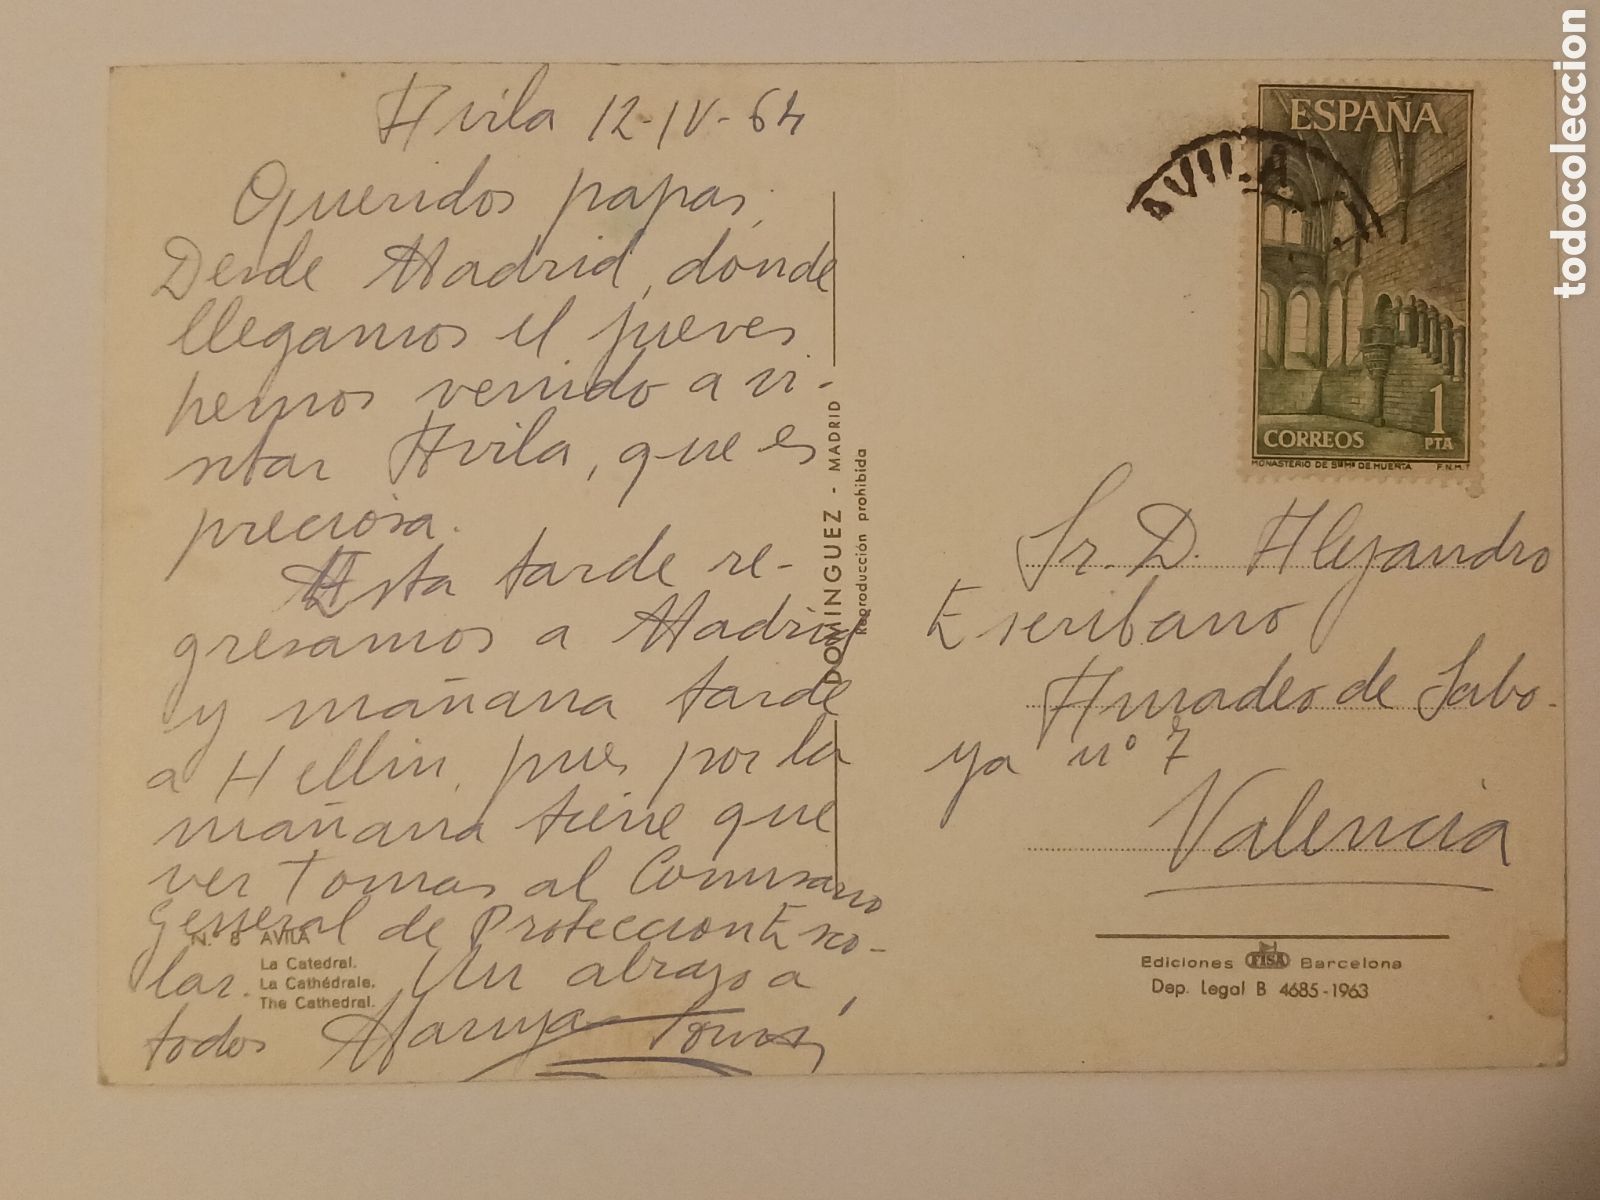 Avila 12-IV-64
Queridos papas,
Desde Madrid, donde
llegamos el jueves
hemos venido a vi-
sitar Avila, que es
preciosa.
Esta tarde re-
gresamos a Madrid
y mañana tarde
a Hellin, pues por la
mañana tiene que
ver Tomas al Comisario
General de Proteccion Esco-
lar. Un abrazo a
todos Maruja Tomas
N.º 8 AVILA
La Catedral.
La Cathédrale.
The Cathedral.
DOMINGUEZ - MADRID
Reproducción prohibida
AVILA
ESPAÑA
1
PTA
CORREOS
MONASTERIO DE Sta Mª DE HUERTA F.N.M.T
Sr. D. Alejandro
Escribano
Amadeo de Sabo-
ya nº 7
Valencia
Ediciones FISA Barcelona
Dep. Legal B 4685-1963
todocoleccion